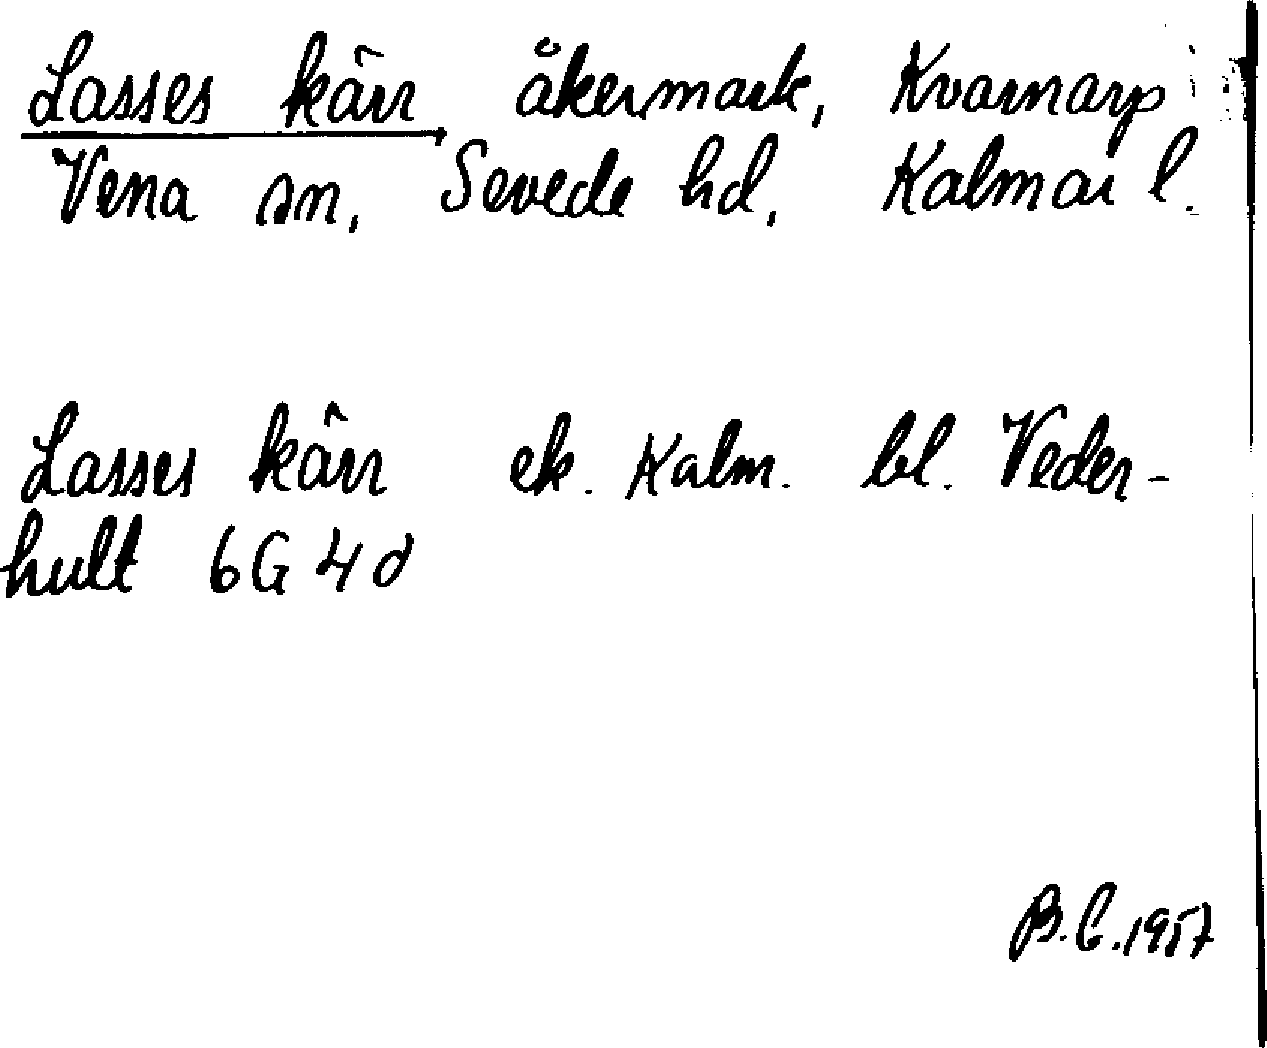 Lasses kärr åkermark, Kvarnarp
Vena sn, Sevede hd, Kalmar l.
Lasses kärr ek. Kalm. bl. Veder-
hult 6G 4d
B.C. 1957